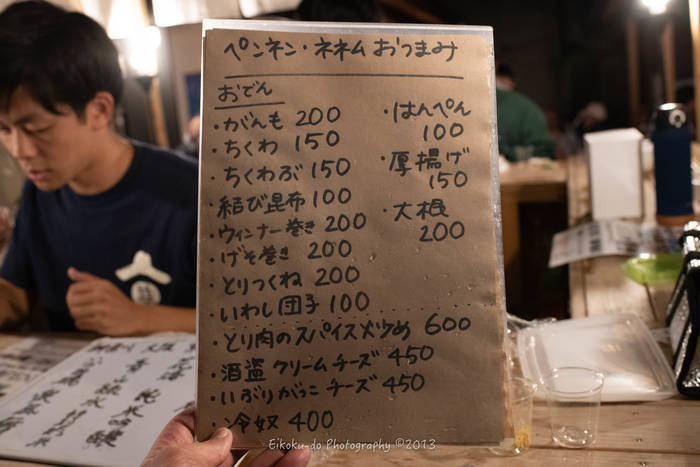 ペンネン・ネネム おつまみ
おでん
・がんも 200
・ちくわ 150
・ちくわぶ 150
・結び昆布 100
・ウィンナー巻き 200
・げそ巻き 200
・とりつくね 200
・いわし団子 100
・はんぺん
100
・厚揚げ
150
・大根
200
・とり肉のスパイス炒め 600
・酒盗クリームチーズ 450
・いぶりがっこチーズ 450
・冷奴 400
Eikoku-do Photography ©2013